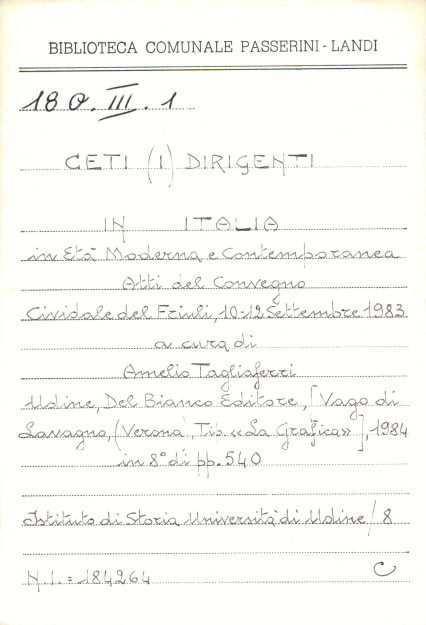 BIBLIOTECA COMUNALE PASSERINI-LANDI
18 O. III. 1
CETI (I) DIRIGENTI
IN ITALIA
in Età Moderna e Contemporanea
Atti del Convegno
Cividale del Friuli, 10-12 Settembre 1983
a cura di
Amelio Tagliaferri
Udine, Del Bianco Editore, [Vago di
Lavagno, (Verona), Tip. «La Grafica»], 1984
in 8° di pp. 540
Istituto di Storia Università di Udine / 8
N.I. = 184264
C